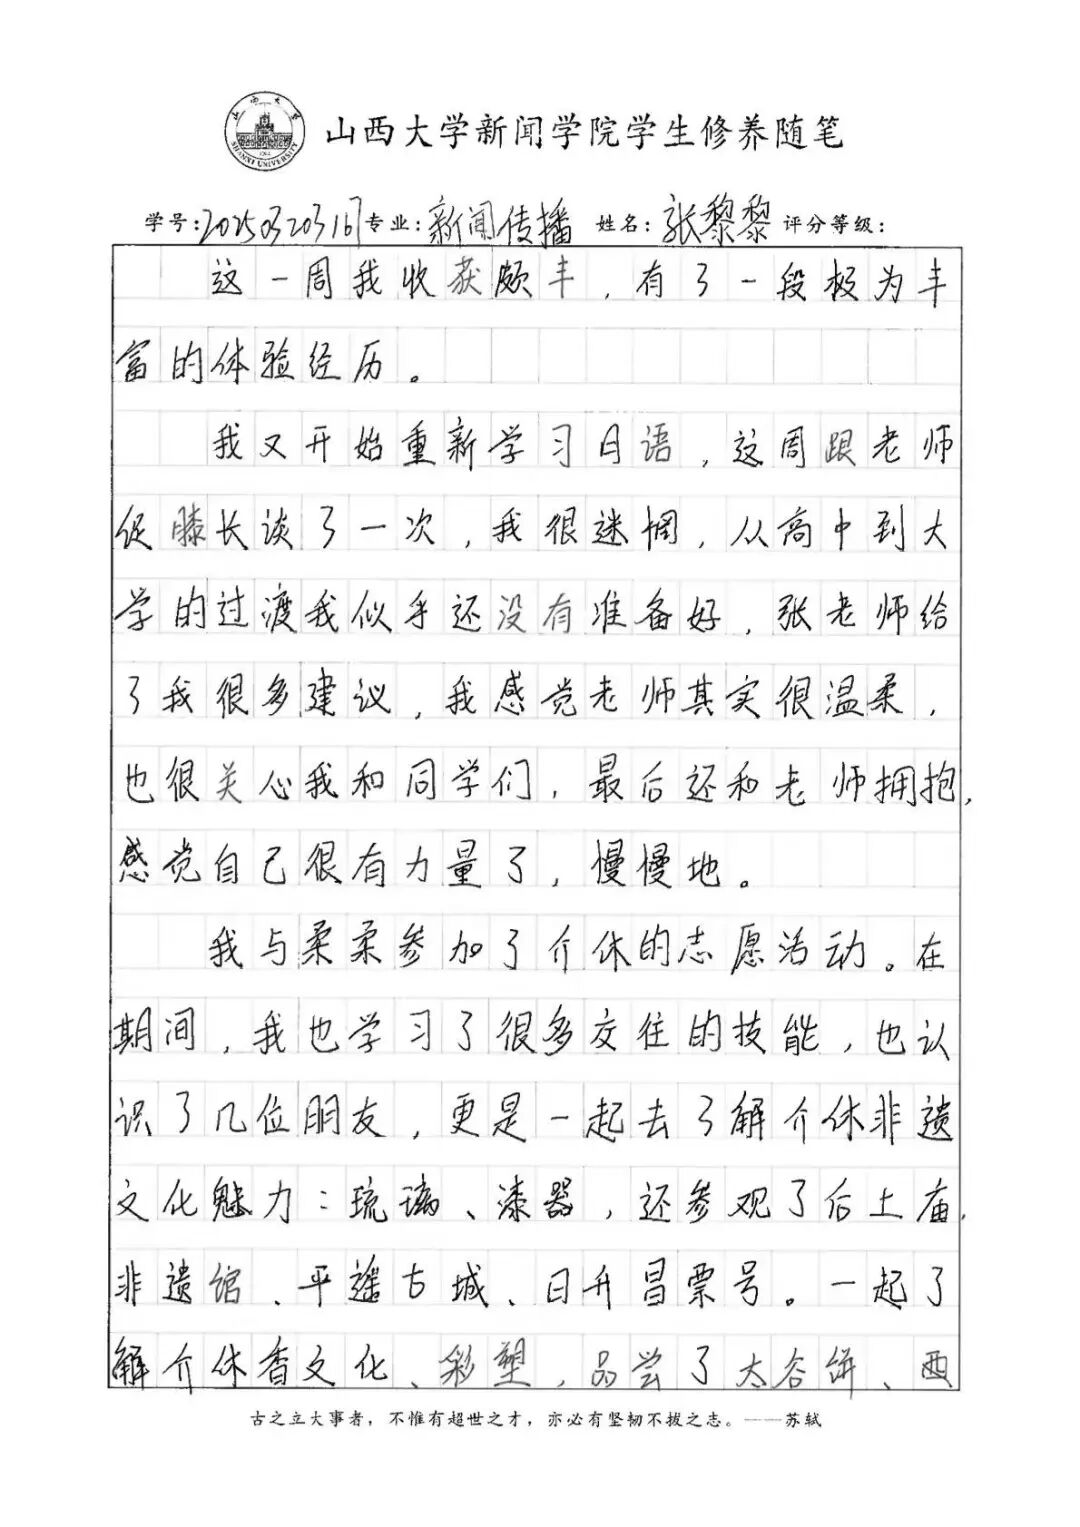 山西大学新闻学院学生修养随笔
学号:202503203167 专业:新闻传播 姓名:张黎黎 评分等级:
这一周我收获颇丰,有了一段极为丰
富的体验经历。
我又开始重新学习日语,这周跟老师
促膝长谈了一次,我很迷惘,从高中到大
学的过渡我似乎还没有准备好,张老师给
了我很多建议,我感觉老师其实很温柔,
也很关心我和同学们,最后还和老师拥抱,
感觉自己很有力量了,慢慢地。
我与柔柔参加了介休的志愿活动。在
期间,我也学习了很多交往的技能,也认
识了几位朋友,更是一起去了解介休非遗
文化魅力:琉璃、漆器,还参观了后土庙,
非遗馆、平遥古城、日升昌票号。一起了
解介休香文化、彩塑,品尝了太谷饼、西
古之立大事者,不惟有超世之才,亦必有坚韧不拔之志。——苏轼